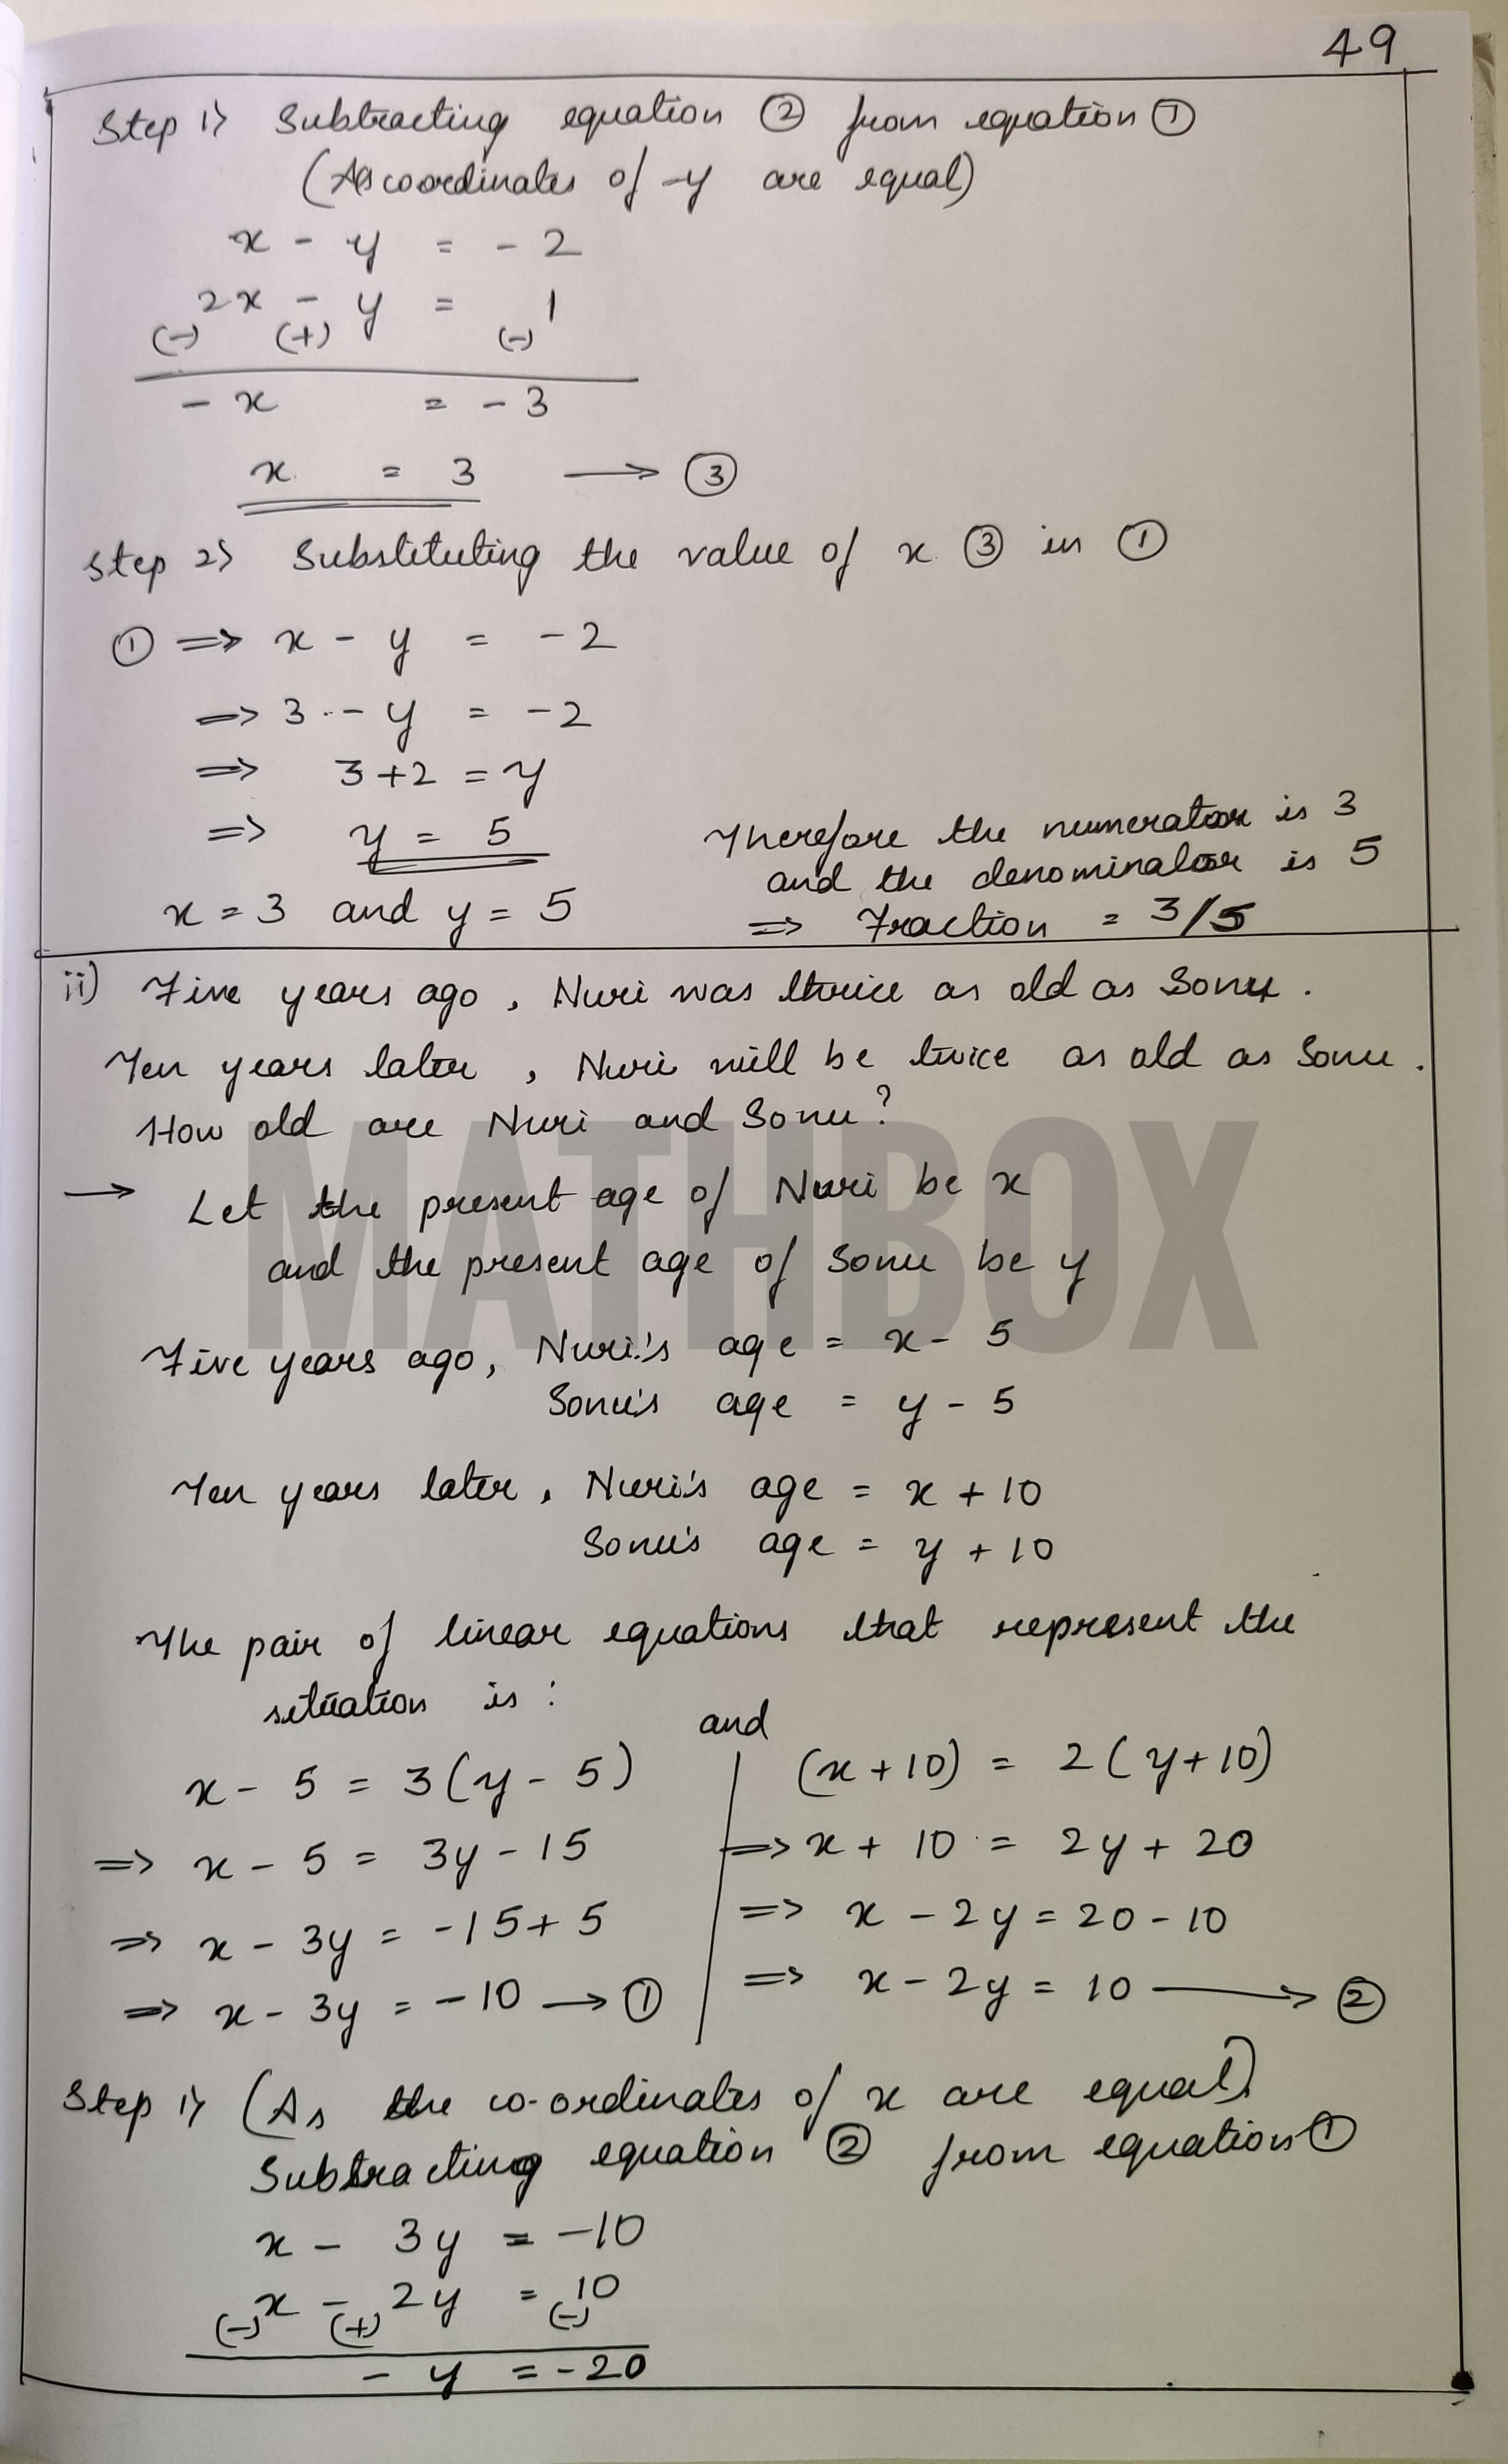 49
Step 1) Subtracting equation ② from equation ①
(As coordinates of -y are equal)
x - y = - 2
2x - y = 1
(-) (+) (-)
- x = - 3
x = 3 → ③
Step 2) Substituting the value of x ③ in ①
① ⇒ x - y = - 2
⇒ 3 - y = - 2
⇒ 3 + 2 = y
⇒ y = 5
x = 3 and y = 5
Therefore the numerator is 3
and the denominator is 5
⇒ Fraction = 3/5
ii) Five years ago, Nuri was thrice as old as Sonu.
Ten years later, Nuri will be twice as old as Sonu.
How old are Nuri and Sonu?
→ Let the present age of Nuri be x
and the present age of Sonu be y
MATHBOX
Five years ago, Nuri's age = x - 5
Sonu's age = y - 5
Ten years later, Nuri's age = x + 10
Sonu's age = y + 10
The pair of linear equations that represent the
situation is :
x - 5 = 3(y - 5)
⇒ x - 5 = 3y - 15
⇒ x - 3y = -15 + 5
⇒ x - 3y = - 10 → ①
and
(x + 10) = 2(y + 10)
⇒ x + 10 = 2y + 20
⇒ x - 2y = 20 - 10
⇒ x - 2y = 10 → ②
Step 1) (As the co-ordinates of x are equal)
Subtracting equation ② from equation ①
x - 3y = -10
x - 2y = 10
(-) (+) (-)
- y = -20